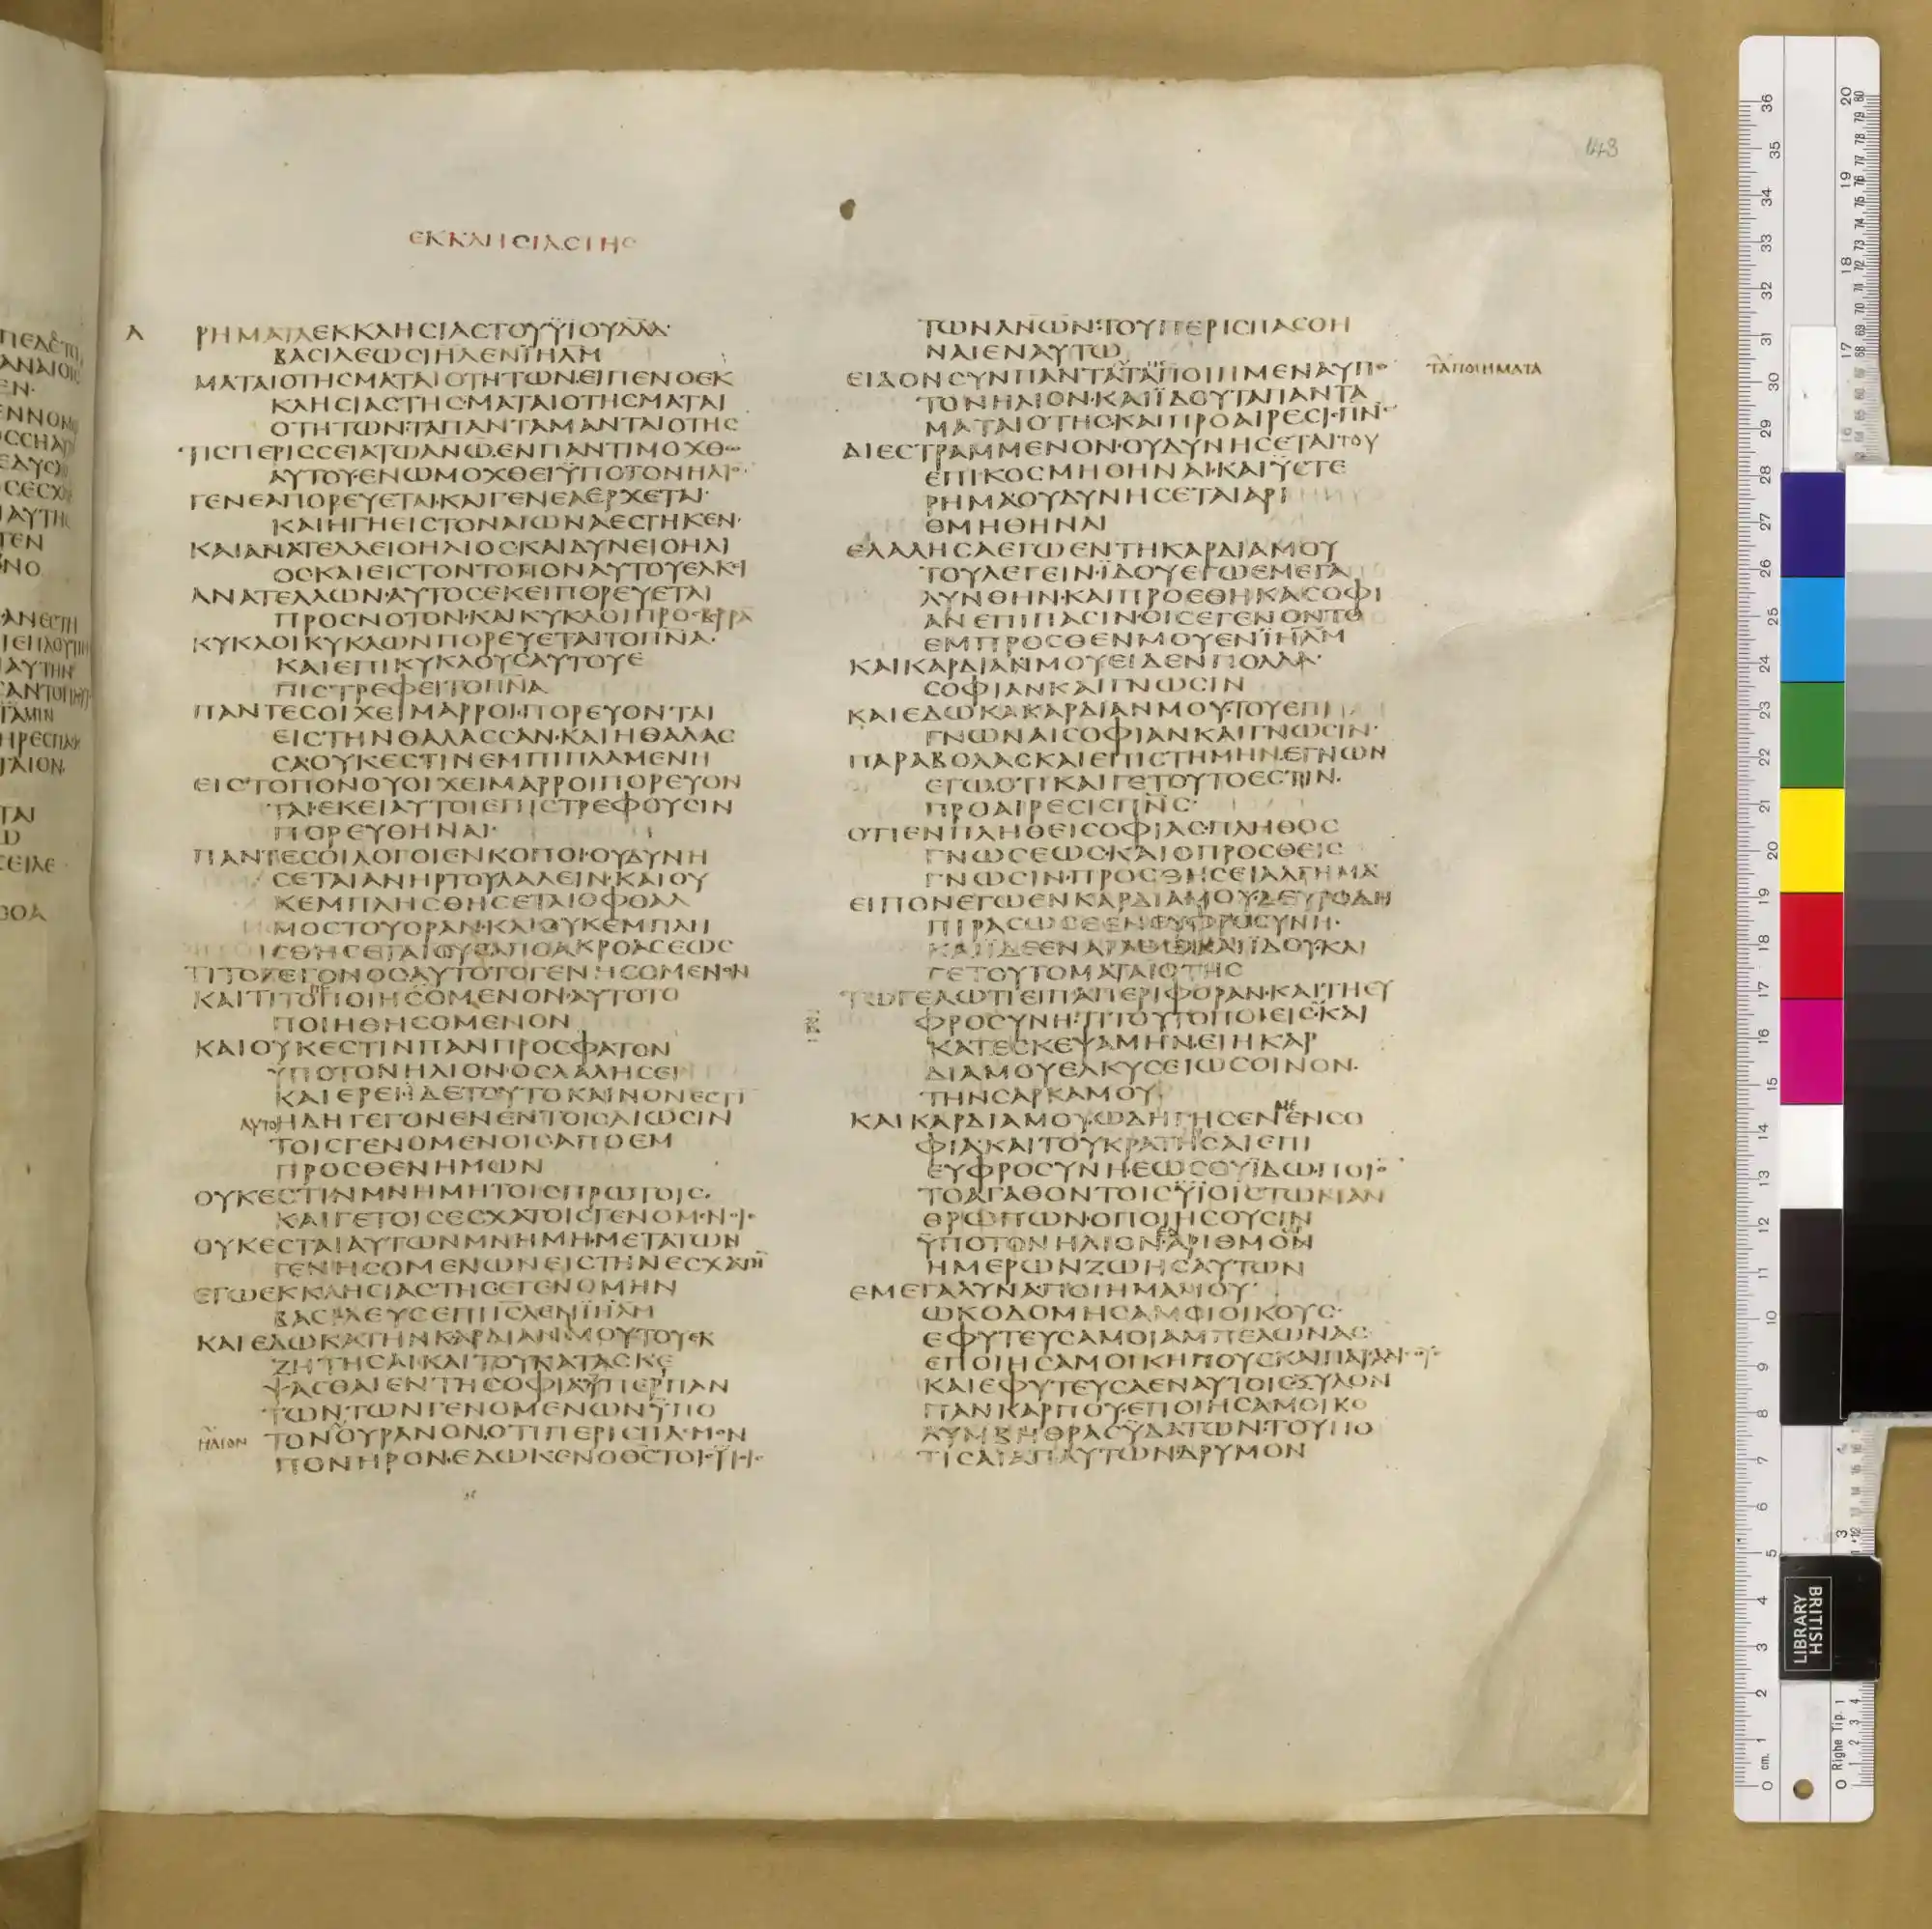 148
ΕΚΚΛΗCΙΑCΤΗC
Α
ΡΗΜΑΤΑΕΚΚΛΗCΙΑCΤΟΥΫΙΟΥΔΑΔ·
ΒΑCΙΛΕΩCΙΗΛΕΝΪΗΛΜ
ΜΑΤΑΙΟΤΗCΜΑΤΑΙΟΤΗΤΩΝ·ΕΙΠΕΝΟΕΚ
ΚΛΗCΙΑCΤΗC·ΜΑΤΑΙΟΤΗCΜΑΤΑΙ
ΟΤΗΤΩΝ·ΤΑΠΑΝΤΑΜΑΝΤΑΙΟΤΗC
ΤΙCΠΕΡΙCCΕΙΑΤΩΑΝΩ·ΕΝΠΑΝΤΙΜΟΧΘΩ
ΑΥΤΟΥ·ΕΝΩΜΟΧΘΕΙΫΠΟΤΟΝΗΛΙΟ·
ΓΕΝΕΑΠΟΡΕΥΕΤΑΙ·ΚΑΙΓΕΝΕΑΕΡΧΕΤΑΙ·
ΚΑΙΗΓΗΕΙCΤΟΝΑΙΩΝΑΕCΤΗΚΕΝ·
ΚΑΙΑΝΑΤΕΛΛΕΙΟΗΛΙΟC·ΚΑΙΔΥΝΕΙΟΗΛΙ
ΟCΚΑΙΕΙCΤΟΝΤΟΠΟΝΑΥΤΟΥΕΛΚΙ
ΑΝΑΤΕΛΛΩΝ·ΑΥΤΟCΕΚΕΙΠΟΡΕΥΕΤΑΙ
ΠΡΟCΝΟΤΟΝ·ΚΑΙΚΥΚΛΟΙΠΡΟCΒΡΡΑ
ΚΥΚΛΟΙΚΥΚΛΩΝΠΟΡΕΥΕΤΑΙΤΟΠΝΑ·
ΚΑΙΕΠΙΚΥΚΛΟΥCΑΥΤΟΥΕ
ΠΙCΤΡΕΦΕΙΤΟΠΝΑ
ΠΑΝΤΕCΟΙΧΕΙΜΑΡΡΟΙ·ΠΟΡΕΥΟΝΤΑΙ
ΕΙCΤΗΝΘΑΛΑCCΑΝ·ΚΑΙΗΘΑΛΑC
CΑΟΥΚΕCΤΙΝΕΜΠΙΠΛΑΜΕΝΗ
ΕΙCΤΟΠΟΝΟΥΟΙΧΕΙΜΑΡΡΟΙΠΟΡΕΥΟΝ
ΤΑΙ·ΕΚΕΙΑΥΤΟΙΕΠΙCΤΡΕΦΟΥCΙΝ
ΠΟΡΕΥΘΗΝΑΙ·
ΠΑΝΤΕCΟΙΛΟΓΟΙΕΝΚΟΠΟΙ·ΟΥΔΥΝΗ
CΕΤΑΙΑΝΗΡΤΟΥΛΑΛΕΙΝ·ΚΑΙΟΥ
ΚΕΜΠΛΗCΘΗCΕΤΑΙΟΦΘΑΛ
ΜΟCΤΟΥΟΡΑΝ·ΚΑΙΟΥΚΕΜΠΛΗ
CΘΗCΕΤΑΙΟΥCΑΠΟΑΚΡΟΑCΕΩC
ΤΙΤΟΓΕΓΟΝΟCΑΥΤΟΤΟΓΕΝΗCΟΜΕΝΟΝ
ΚΑΙΤΙΤΟΠΟΙΗCΟΜΕΝΟΝ·ΑΥΤΟΤΟ
ΠΟΙΗΘΗCΟΜΕΝΟΝ
ΚΑΙΟΥΚΕCΤΙΝΠΑΝΠΡΟCΦΑΤΟΝ
ΥΠΟΤΟΝΗΛΙΟΝ·ΟCΛΑΛΗCΕΙ
ΚΑΙΕΡΕΙ·ΪΔΕΤΟΥΤΟΚΑΙΝΟΝΕCΤΙ
ΑΥΤΟ ΗΔΗΓΕΓΟΝΕΝΕΝΤΟΙCΑΙΩCΙΝ
ΤΟΙCΓΕΝΟΜΕΝΟΙCΑΠΟΕΜ
ΠΡΟCΘΕΝΗΜΩΝ
ΟΥΚΕCΤΙΝΜΝΗΜΗΤΟΙCΠΡΩΤΟΙC·
ΚΑΙΓΕΤΟΙCΕCΧΑΤΟΙCΓΕΝΟΜΕΝΟΙC
ΟΥΚΕCΤΑΙΑΥΤΩΝΜΝΗΜΗ·ΜΕΤΑΤΩΝ
ΓΕΝΗCΟΜΕΝΩΝΕΙCΤΗΝΕCΧΑΤΗ
ΕΓΩΕΚΚΛΗCΙΑCΤΗCΕΓΕΝΟΜΗΝ
ΒΑCΙΛΕΥCΕΠΙΙCΛΕΝΪΗΛΜ
ΚΑΙΕΔΩΚΑΤΗΝΚΑΡΔΙΑΝΜΟΥΤΟΥΕΚ
ΖΗΤΗCΑΙΚΑΙΤΟΥΚΑΤΑCΚΕ
ΨΑCΘΑΙΕΝΤΗCΟΦΙΑΠΕΡΠΑΝ
ΤΩΝ·ΤΩΝΓΕΝΟΜΕΝΩΝΫΠΟ
ΗΛΙΟΝ ΤΟΝΟΥΡΑΝΟΝ·ΟΤΙΠΕΡΙCΠΑCΜΟΝ
ΠΟΝΗΡΟΝ·ΕΔΩΚΕΝΟΘCΤΟΙCΫΙΟΙC
ΤΩΝΑΝΩΝ·ΤΟΥΠΕΡΙCΠΑCΘΗ
ΝΑΙΕΝΑΥΤΩ
ΕΙΔΟΝCΥΝΠΑΝΤΑΤΑΠΟΙΗΜΕΝΑΥΠΟ ΤΑΠΟΙΗΜΑΤΑ
ΤΟΝΗΛΙΟΝ·ΚΑΙΪΔΟΥΤΑΠΑΝΤΑ
ΜΑΤΑΙΟΤΗC·ΚΑΙΠΡΟΑΙΡΕCΙC·ΠΝC
ΔΙΕCΤΡΑΜΜΕΝΟΝ·ΟΥΔΥΝΗCΕΤΑΙΤΟΥ
ΕΠΙΚΟCΜΗΘΗΝΑΙ·ΚΑΙΫCΤΕ
ΡΗΜΑΟΥΔΥΝΗCΕΤΑΙΑΡΙ
ΘΜΗΘΗΝΑΙ
ΕΛΑΛΗCΑΕΓΩΕΝΤΗΚΑΡΔΙΑΜΟΥ
ΤΟΥΛΕΓΕΙΝ·ΪΔΟΥΕΓΩΕΜΕΓΑ
ΛΥΝΘΗΝ·ΚΑΙΠΡΟΕΘΗΚΑCΟΦΙ
ΑΝΕΠΙΠΑCΙΝ·ΟΙCΕΓΕΝΟΝΤΟ
ΕΜΠΡΟCΘΕΝΜΟΥΕΝΪΗΛΜ
ΚΑΙΚΑΡΔΙΑΜΟΥΕΙΔΕΝΠΟΛΛΑ·
CΟΦΙΑΝΚΑΙΓΝΩCΙΝ
ΚΑΙΕΔΩΚΑΚΑΡΔΙΑΝΜΟΥ·ΤΟΥΕΠΙ
ΓΝΩΝΑΙCΟΦΙΑΝΚΑΙΓΝΩCΙΝ·
ΠΑΡΑΒΟΛΑCΚΑΙΕΠΙCΤΗΜΗΝ·ΕΓΝΩΝ
ΕΓΩ·ΟΤΙΚΑΙΓΕΤΟΥΤΟΕCΤΙΝ·
ΠΡΟΑΙΡΕCΙCΠΝC·
ΟΤΙΕΝΠΛΗΘΕΙCΟΦΙΑC·ΠΛΗΘΟC
ΓΝΩCΕΩC·ΚΑΙΟΠΡΟCΘΕΙC
ΓΝΩCΙΝ·ΠΡΟCΘΗCΕΙΑΛΓΗΜΑ
ΕΙΠΟΝΕΓΩΕΝΚΑΡΔΙΑΜΟΥ·ΔΕΥΡΟΔΗ
ΠΙΡΑCΩCΕΕΝΕΥΦΡΟCΥΝΗ·
ΚΑΙΪΔΕΕΝΑΓΑΘΩΚΑΙΪΔΟΥΚΑΙ
ΓΕΤΟΥΤΟΜΑΤΑΙΟΤΗC
ΤΩΓΕΛΩΤΙΕΙΠΑΠΕΡΙΦΟΡΑΝ·ΚΑΙΤΗΕΥ
ΦΡΟCΥΝΗ·ΤΙΤΟΥΤΟΠΟΙΕΙC·ΚΑΙ
ΚΑΤΕCΚΕΨΑΜΗΝ·ΕΙΗΚΑΡ
ΔΙΑΜΟΥΕΛΚΥCΕΙΩCΟΙΝΟΝ·
ΤΗΝCΑΡΚΑΜΟΥ
ΚΑΙΚΑΡΔΙΑΜΟΥ·ΩΔΗΓΗCΕΝΜΕΕΝCΟ
ΦΙΑ·ΚΑΙΤΟΥΚΡΑΤΗCΑΙΕΠΙ
ΕΥΦΡΟCΥΝΗ·ΕΩCΟΥΪΔΩ·ΠΟΙΟ
ΤΟΑΓΑΘΟΝΤΟΙCΫΙΟΙCΤΩΝΑΝ
ΘΡΩΠΩΝ·ΟΠΟΙΗCΟΥCΙΝ
ΫΠΟΤΟΝΗΛΙΟΝΑΡΙΘΜΟΝ
ΗΜΕΡΩΝΖΩΗCΑΥΤΩΝ
ΕΜΕΓΑΛΥΝΑΠΟΙΗΜΑΜΟΥ
ΩΚΟΔΟΜΗCΑΜΟΙΟΙΚΟΥC·
ΕΦΥΤΕΥCΑΜΟΙΑΜΠΕΛΩΝΑC
ΕΠΟΙΗCΑΜΟΙΚΗΠΟΥCΚΑΙΠΑΡΑΔΙCΟΥC
ΚΑΙΕΦΥΤΕΥCΑΕΝΑΥΤΟΙCΞΥΛΟΝ
ΠΑΝΚΑΡΠΟΥ·ΕΠΟΙΗCΑΜΟΙΚΟ
ΛΥΜΒΗΘΡΑCΫΔΑΤΩΝ·ΤΟΥΠΟ
ΤΙCΑΙΑΠΑΥΤΩΝΔΡΥΜΟΝ
BRITISH
LIBRARY
Righe Tip. 1